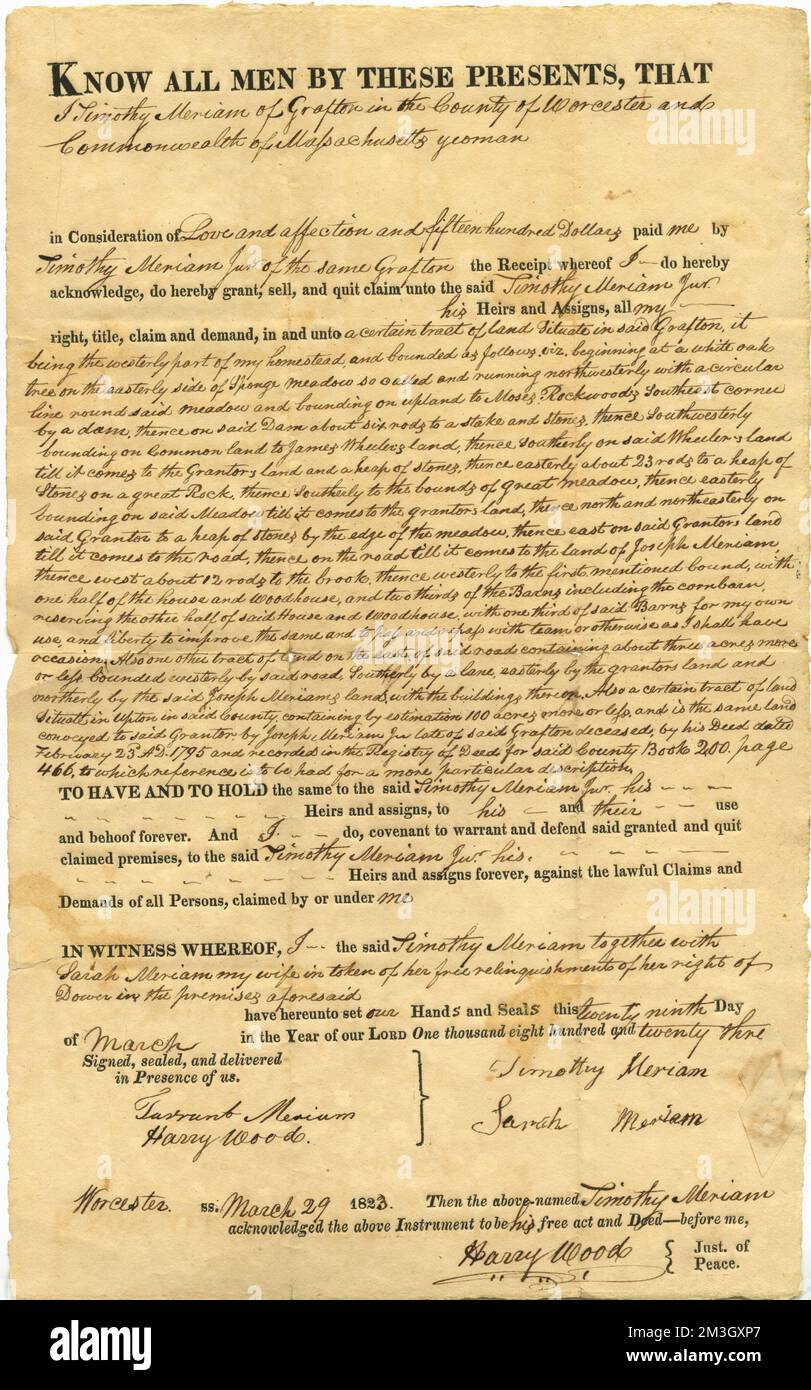 KNOW ALL MEN BY THESE PRESENTS, THAT
I Timothy Meriam of Grafton in the County of Worcester and
Commonwealth of Massachusetts yeoman
in Consideration of Love and affection and fifteen hundred Dollars paid me by
Timothy Meriam Jur of the same Grafton the Receipt whereof I do hereby
acknowledge, do hereby grant, sell, and quit claim unto the said Timothy Meriam Jur.
his Heirs and Assigns, all my
right, title, claim and demand, in and unto a certain tract of land Situate in said Grafton, it
being the westerly part of my homestead, and bounded as follows, viz. beginning at a white oak
tree on the easterly side of Sponge meadow so called and running northwesterly with a circular
line round said meadow and bounding on upland to Moses Rockwoods Southeast corner
by a dam, thence on said Dam about six rods to a stake and stones, thence Southwesterly
bounding on Common land to James Wheelers land, thence Southerly on said Wheelers land
till it comes to the Grantors land and a heap of stones, thence easterly about 23 rods to a heap of
Stones on a great Rock, thence Southerly to the bounds of Great meadow, thence easterly
bounding on said Meadow till it comes to the grantors land, thence north and northeasterly on
said Grantor to a heap of stones by the edge of the meadow, thence east on said Grantors land
till it comes to the road, thence on the road till it comes to the land of Joseph Meriam,
thence west about 12 rods to the brook, thence westerly to the first mentioned bound, with
one half of the house and Woodhouse, and two thirds of the Barns including the cornbarn,
reserving the other half of said House and Woodhouse, with one third of said Barns for my own
use, and liberty to improve the same and to pass and repass with team or otherwise as I shall have
occasion. Also one other tract of land on the East of said road containing about three acres more
or less bounded westerly by said road, Southerly by a lane, easterly by the grantors land and
northerly by the said Joseph Meriams land, with the buildings thereon. Also a certain tract of land
Situate in Upton in said County, containing by estimation 100 acres more or less, and is the same land
conveyed to said Grantor by Joseph Meriam Jur late of said Grafton deceased, by his Deed dated
February 23d AD. 1795 and recorded in the Registry of Deed for said County Book 200. page
466, to which reference is to be had for a more particular description.
TO HAVE AND TO HOLD the same to the said Timothy Meriam Jur. his
Heirs and assigns, to his and their use
and behoof forever. And I do, covenant to warrant and defend said granted and quit
claimed premises, to the said Timothy Meriam Jur. his.
Heirs and assigns forever, against the lawful Claims and
Demands of all Persons, claimed by or under me
IN WITNESS WHEREOF, I the said Timothy Meriam together with
Sarah Meriam my wife in token of her free relinquishment of her right of
Dower in the premises aforesaid
have hereunto set our Hands and Seals this twenty ninth Day
of March in the Year of our LORD One thousand eight hundred and twenty thre
Signed, sealed, and delivered
in Presence of us.
Timothy Meriam
Tarrant Meriam
Sarah Meriam
Harry Wood.
Worcester. ss. March 29 1823. Then the above-named Timothy Meriam
acknowledged the above Instrument to be his free act and Deed—before me,
Harry Wood Just. of
Peace.
alamy
Image ID: 2M3GXP7
www.alamy.com